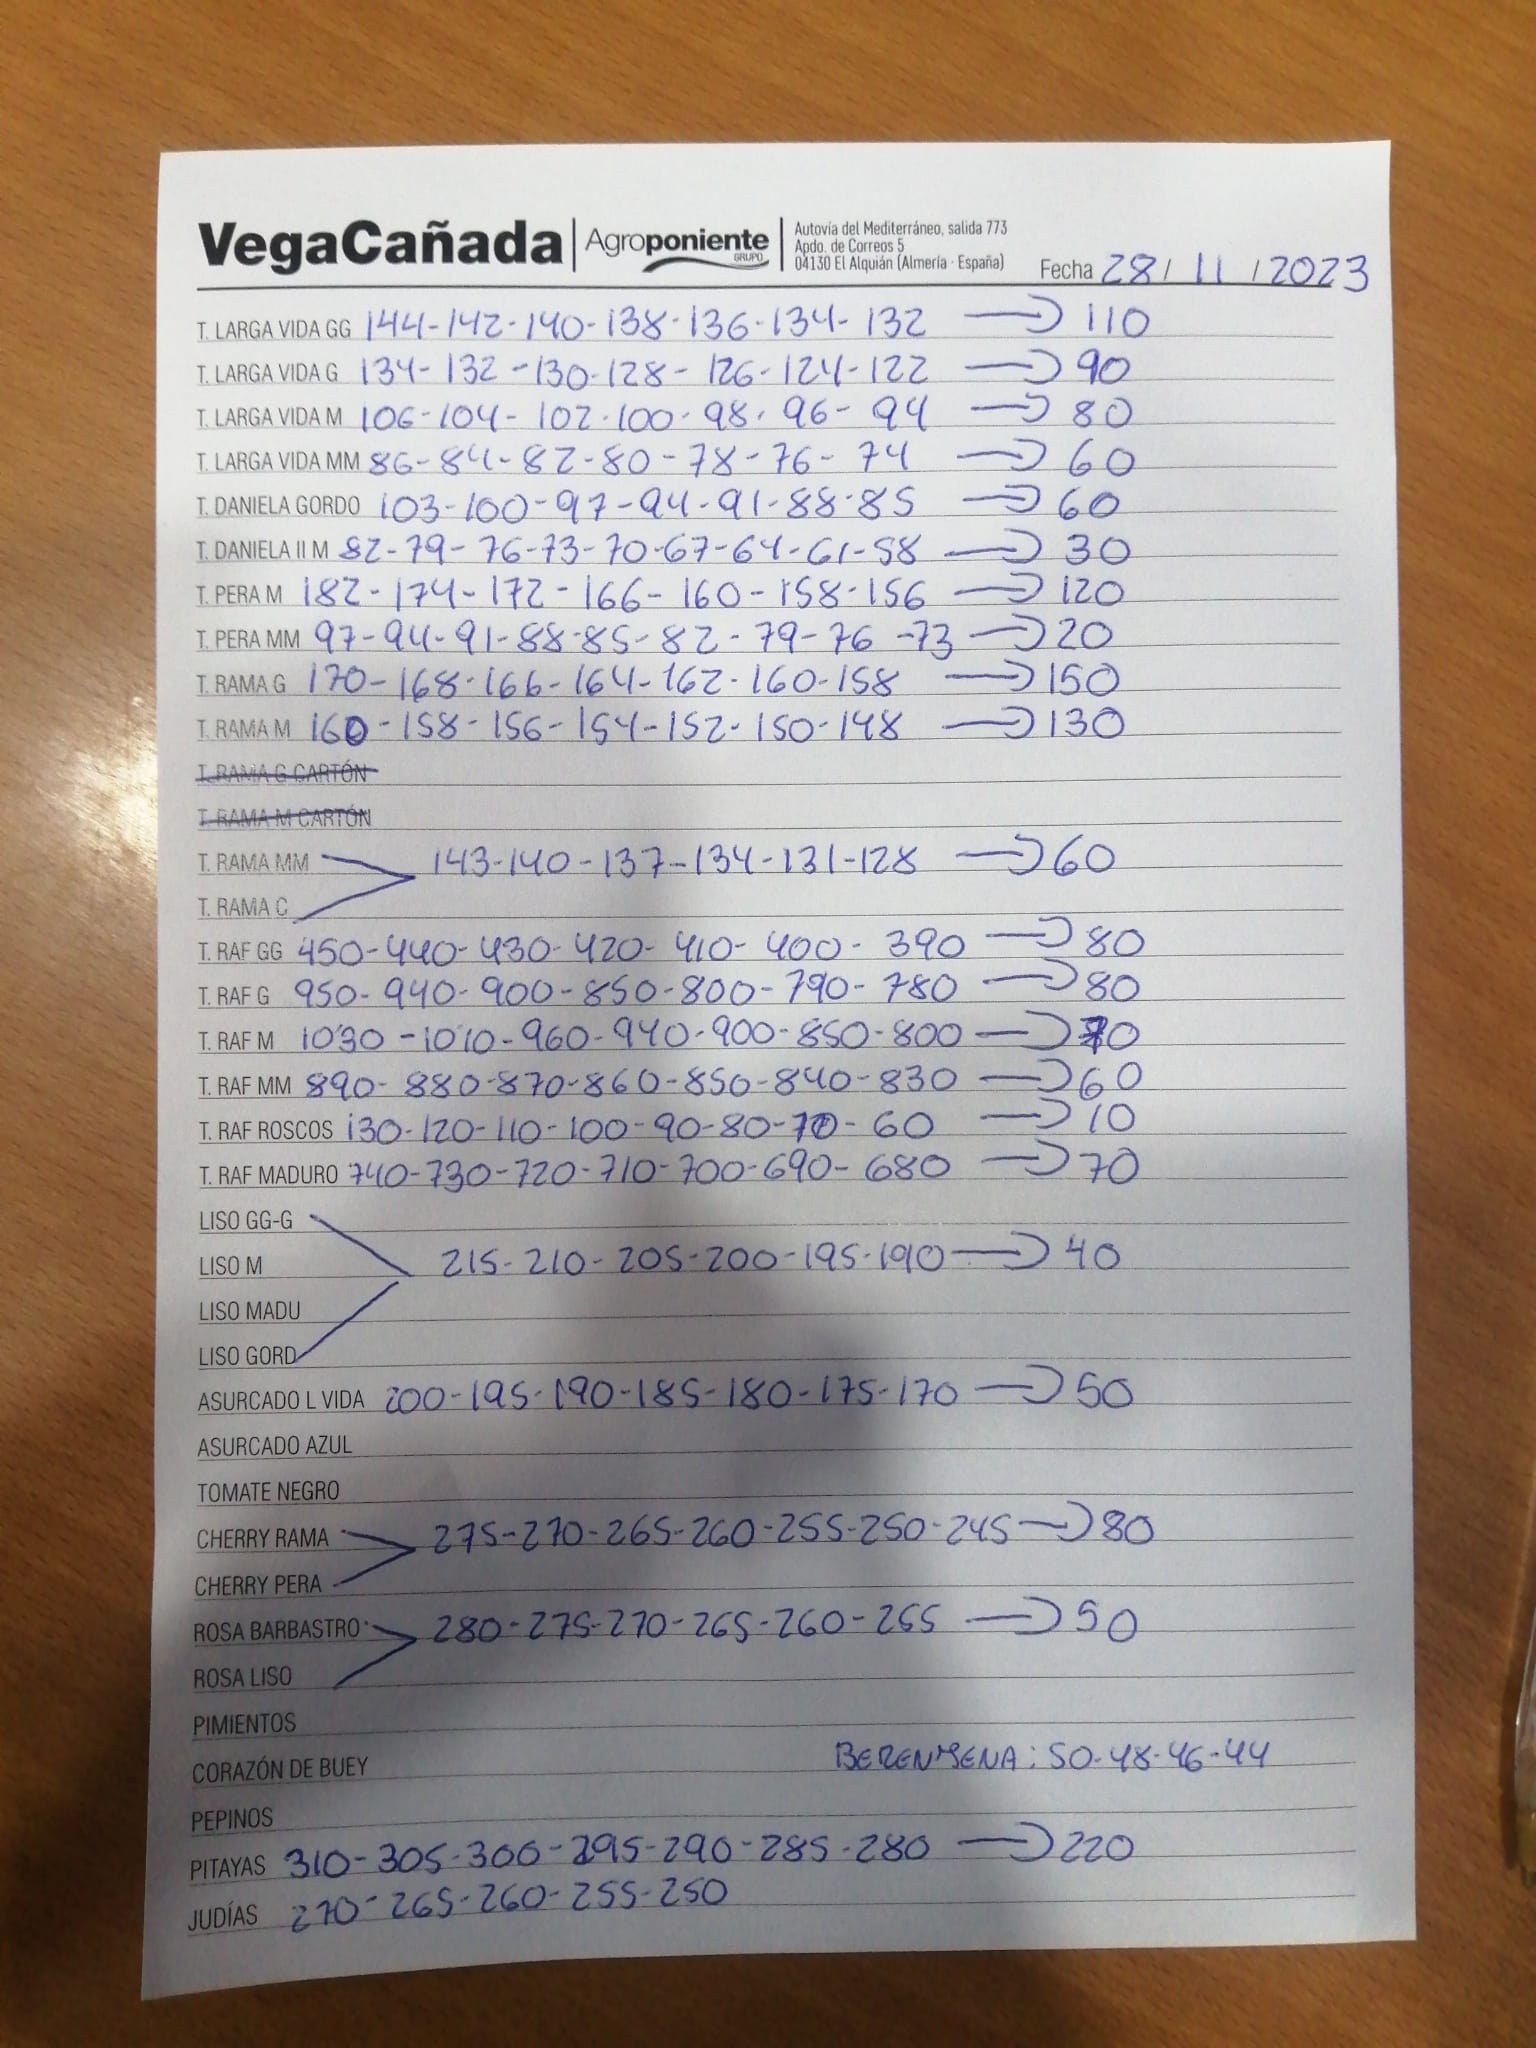 VegaCañada Agroponiente GRUPO
Autovía del Mediterráneo, salida 773
Apdo. de Correos 5
04130 El Alquián (Almería · España)
Fecha 28/11/2023
T. LARGA VIDA GG 144-142-140-138-136-134-132 → 110
T. LARGA VIDA G 134-132-130-128-126-124-122 → 90
T. LARGA VIDA M 106-104-102-100-98-96-94 → 80
T. LARGA VIDA MM 86-84-82-80-78-76-74 → 60
T. DANIELA GORDO 103-100-97-94-91-88-85 → 60
T. DANIELA II M 82-79-76-73-70-67-64-61-58 → 30
T. PERA M 182-174-172-166-160-158-156 → 120
T. PERA MM 97-94-91-88-85-82-79-76-73 → 20
T. RAMA G 170-168-166-164-162-160-158 → 150
T. RAMA M 160-158-156-154-152-150-148 → 130
T. RAMA G CARTÓN
T. RAMA M CARTÓN
T. RAMA MM 143-140-137-134-131-128 → 60
T. RAMA C
T. RAF GG 450-440-430-420-410-400-390 → 80
T. RAF G 950-940-900-850-800-790-780 → 80
T. RAF M 10'30-10'10-960-940-900-850-800 → 70
T. RAF MM 890-880-870-860-850-840-830 → 60
T. RAF ROSCOS 130-120-110-100-90-80-70-60 → 10
T. RAF MADURO 740-730-720-710-700-690-680 → 70
LISO GG-G
LISO M 215-210-205-200-195-190 → 40
LISO MADU
LISO GORD
ASURCADO L VIDA 200-195-190-185-180-175-170 → 50
ASURCADO AZUL
TOMATE NEGRO
CHERRY RAMA 275-270-265-260-255-250-245 → 80
CHERRY PERA
ROSA BARBASTRO 280-275-270-265-260-255 → 50
ROSA LISO
PIMIENTOS
CORAZÓN DE BUEY BERENJENA: 50-48-46-44
PEPINOS
PITAYAS 310-305-300-295-290-285-280 → 220
JUDÍAS 270-265-260-255-250